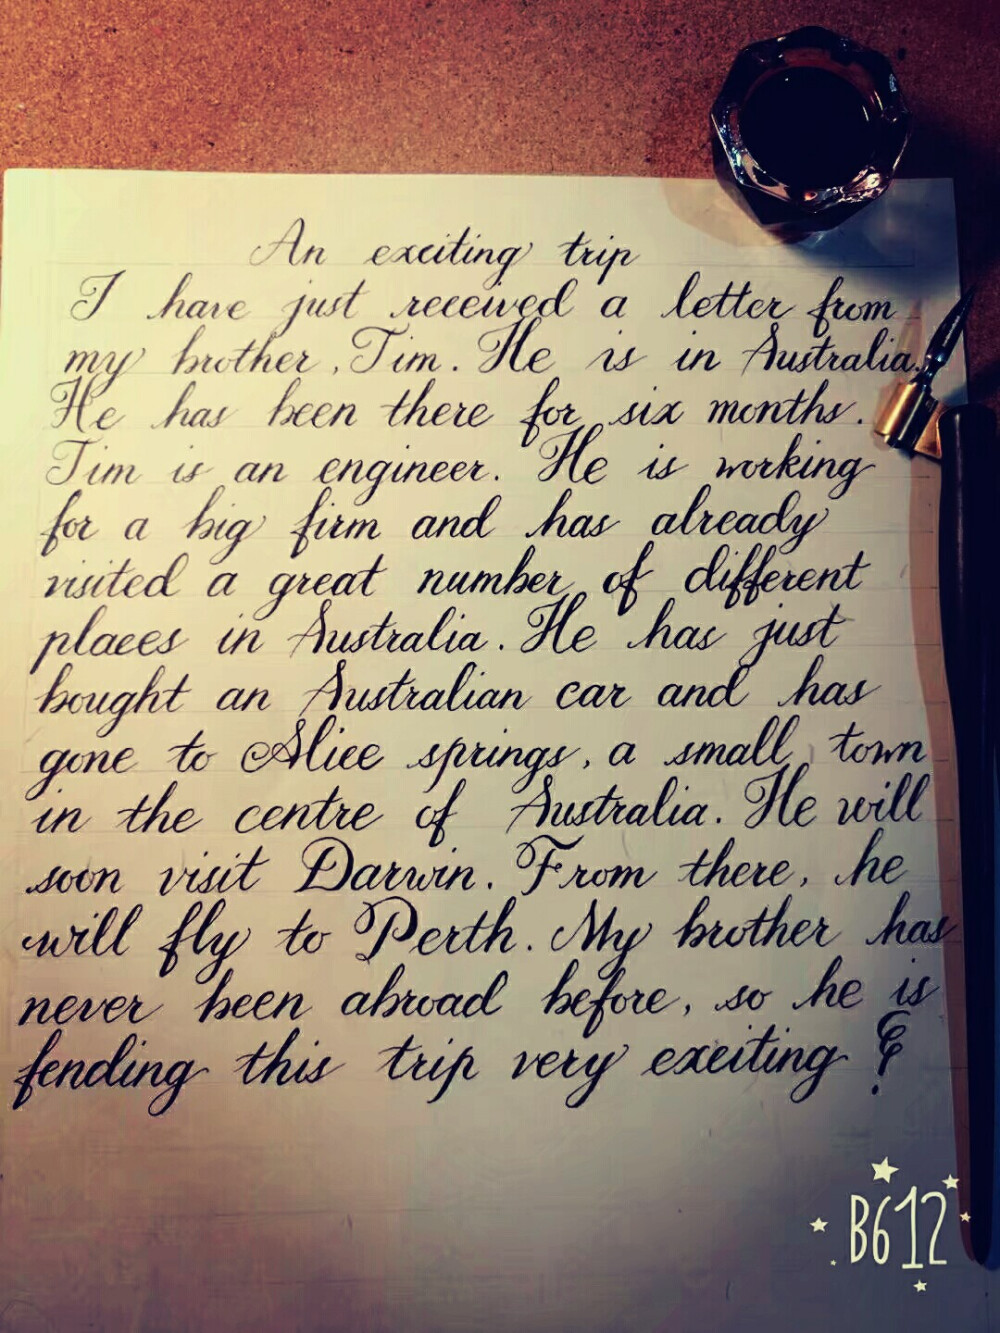 An exciting trip
I have just received a letter from
my brother, Tim. He is in Australia.
He has been there for six months.
Tim is an engineer. He is working
for a big firm and has already
visited a great number of different
places in Australia. He has just
bought an Australian car and has
gone to Alice springs, a small town
in the centre of Australia. He will
soon visit Darwin. From there, he
will fly to Perth. My brother has
never been abroad before, so he is
fending this trip very exciting !
B612